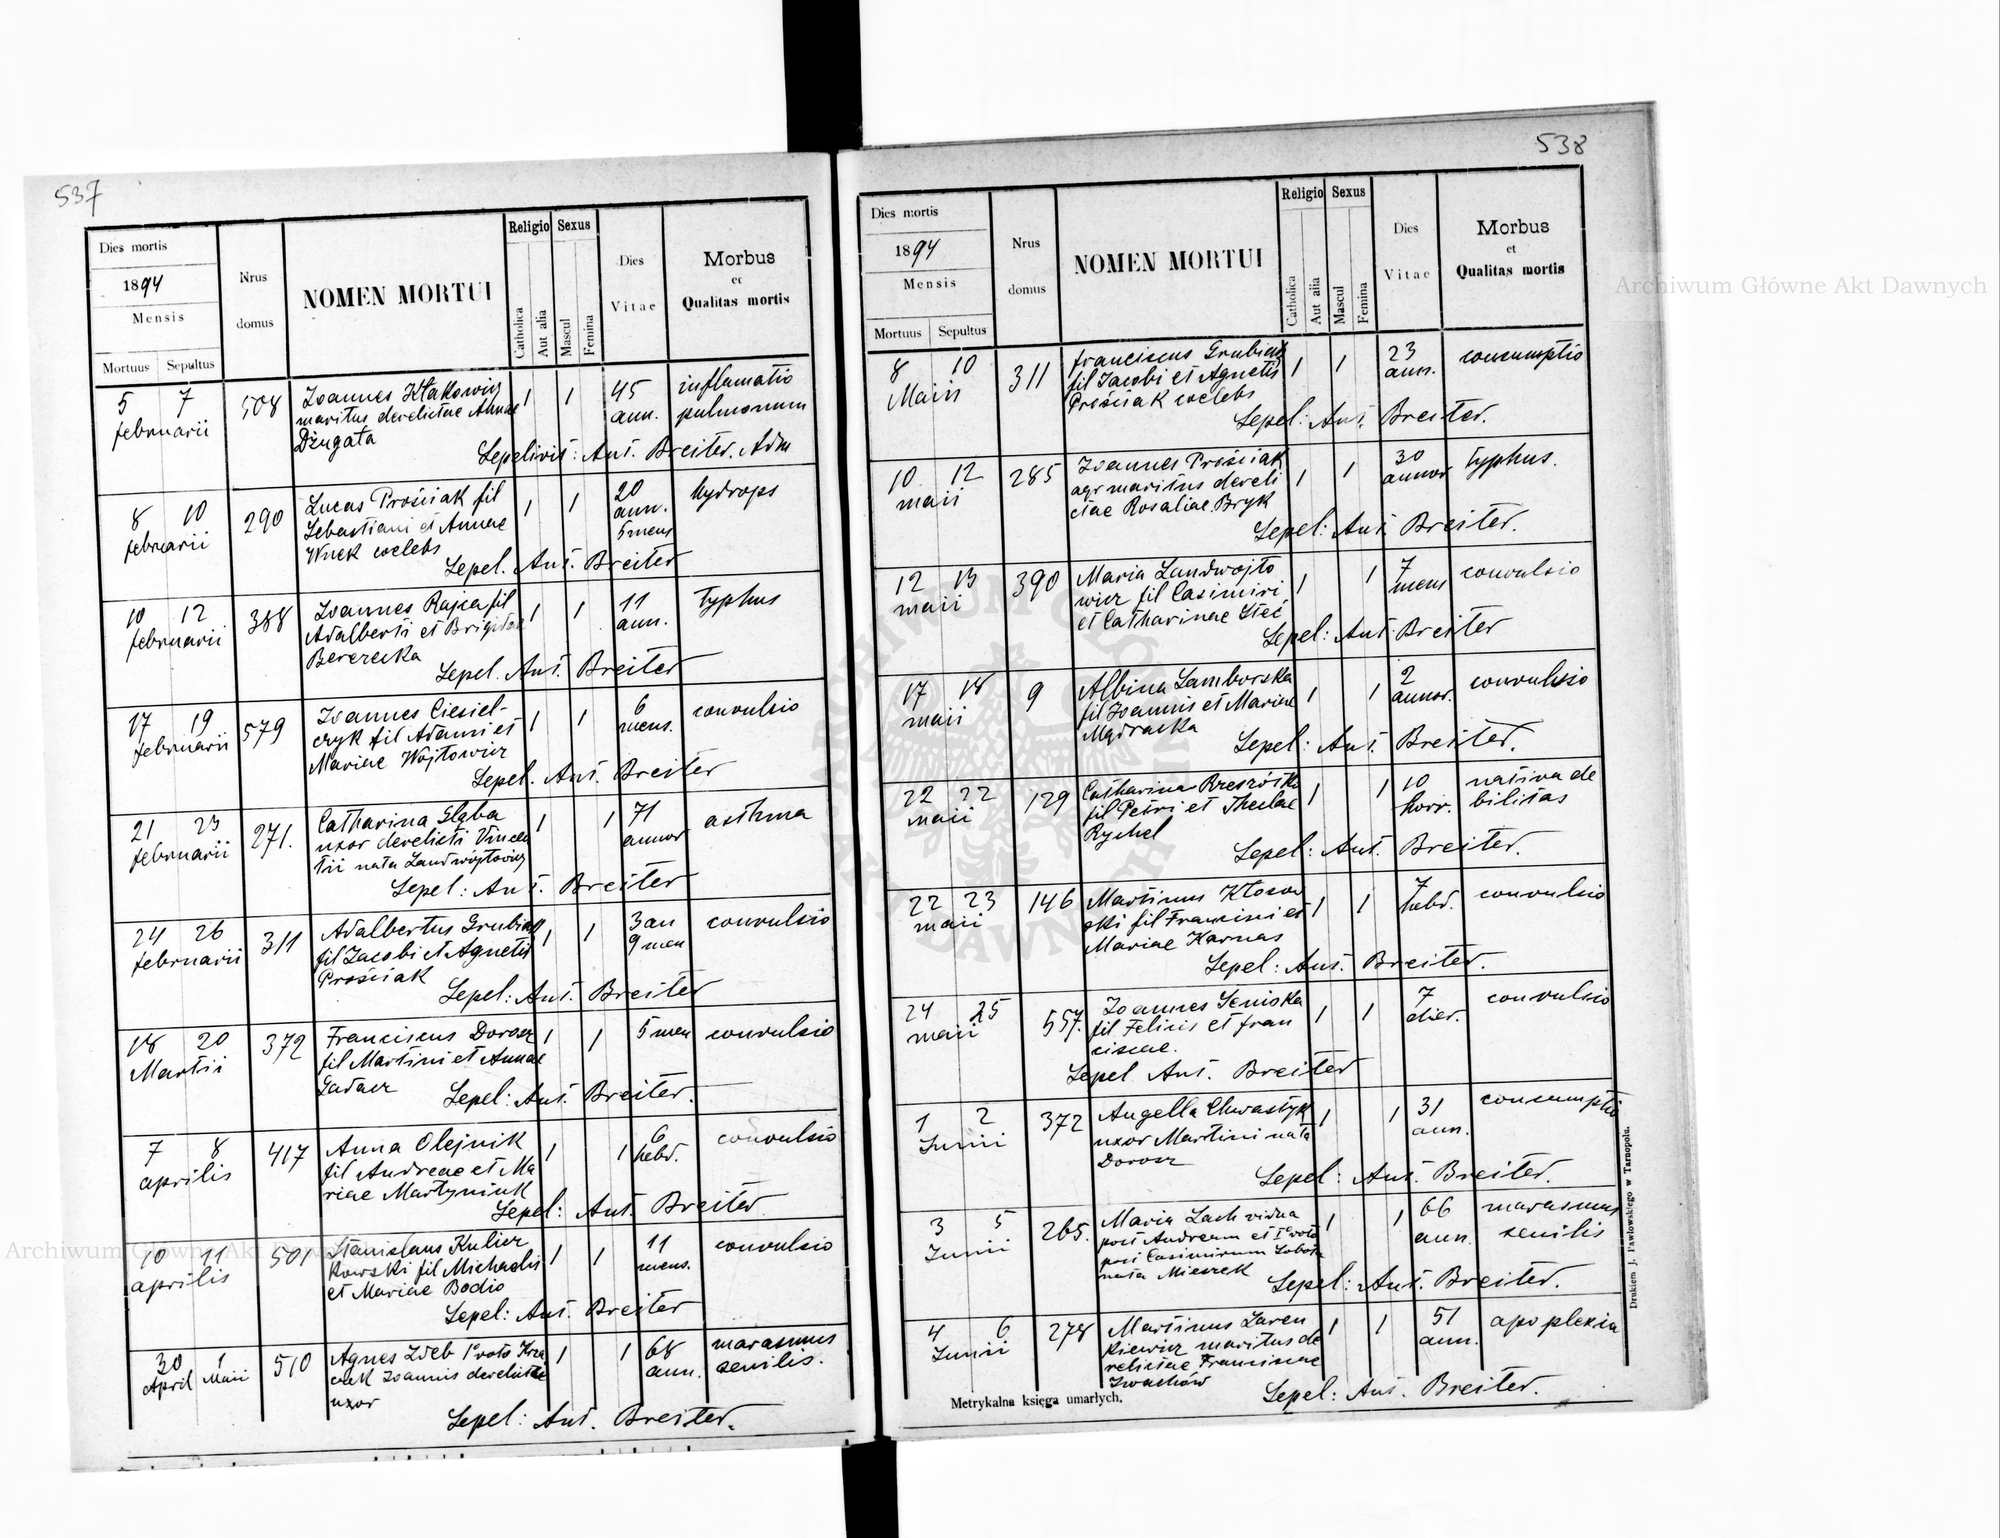 537
Dies mortis
1894
Mensis
Mortuus Sepultus
Nrus
domus
NOMEN MORTUI
Religio
Catholica
Aut alia
Sexus
Mascul
Femina
Dies
Vitae
Morbus
et
Qualitas mortis
5 7 508 Joannes 1 1 45 inflamatio
februarii maritus derelictae Annae ann. pulmonum
Dżugała Sepelivit: Ant. Breiter. Adm
8 10 290 Lucas Prościak fil 1 1 20 hydrops
februarii Sebastiani et Annae ann.
Wnek coelebs 5 mens
Sepel. Ant. Breiter
10 12 388 Joannes Rajca fil 1 1 11 typhus
februarii Adalberti et Brigidae ann.
Berezecka Sepel. Ant. Breiter
17 19 579 Joannes Ciesiel- 1 1 6 convulsio
februarii czyk fil Adami et mens.
Mariae Wojtowicz
Sepel. Ant. Breiter
21 23 271. Catharina Głąba 1 1 71 asthma
februarii uxor derelicti Vincen annor
tii nata Landwójtowicz
Sepel: Ant. Breiter
24 26 311 Adalbertus Grubiak 1 1 3 an convulsio
februarii fil Jacobi et Agnetis 9 men
Prościak Sepel: Ant. Breiter
18 20 372 Franciscus Dorosz 1 1 5 men convulsio
Martii fil Martini et Annae
Gadacz Sepel: Ant. Breiter.
7 8 417 Anna Olejnik 1 1 6 convulsio
aprilis fil Andreae et Ma hebd.
riae Martyniuk
Sepel: Ant. Breiter
10 11 501 Stanislaus Kulicz 1 1 11 convulsio
aprilis kowski fil Michaelis mens.
et Mariae Bodio
Sepel: Ant Breiter
30 1 510 Agnes 1º voto 1 1 68 marasmus
April Maii Joannis derelictae ann. senilis.
uxor
Sepel: Ant. Breiter.
538
Dies mortis
1894
Mensis
Mortuus Sepultus
Nrus
domus
NOMEN MORTUI
Religio
Catholica
Aut alia
Sexus
Mascul
Femina
Dies
Vitae
Morbus
et
Qualitas mortis
8 10 311 Franciscus Grubiak 1 1 23 consumptio
Maii fil Jacobi et Agnetis ann.
Prościak coelebs
Sepel: Ant. Breiter.
10 12 285 Joannes Prościak 1 1 30 typhus.
maii agr maritus dereli annor
ctae Rosaliae Bryk
Sepel: Ant. Breiter.
12 13 390 Maria Landwojto 1 1 7 convulsio
maii wicz fil Casimiri mens
et Catharinae Steć
Sepel: Ant. Breiter
17 18 9 Albina Samborska 1 1 2 convulsio
maii fil Joannis et Mariae annor.
Mądracka
Sepel: Ant. Breiter.
22 22 129 Catharina 1 1 10 nativa de
maii fil Petri et Theclae horr. bilitas
Rychel
Sepel: Ant. Breiter.
22 23 146 Martinus Kłosow 1 1 7 convulsio
maii ski fil Francisci et hebd.
Mariae Karnas
Sepel: Ant. Breiter.
24 25 557. Joannes Seniska 1 1 7 convulsio
maii fil Felicis et Fran dier.
ciscae.
Sepel Ant. Breiter
1 2 372 Angella Chwastyk 1 1 31 consumptio
Junii uxor Martini nata ann.
Dorosz
Sepel: Ant. Breiter.
3 5 265. Maria Lach vidua 1 1 66 marasmus
Junii post Andream et 1º voto ann. senilis
post Casimirum Sobota
nata Mieszek
Sepel: Ant. Breiter.
4 6 278 Martinus Laren 1 1 51 apoplexia
Junii kiewicz maritus de ann.
relictae Franciscae
Iwachów
Sepel: Ant. Breiter.
Metrykalna księga umarłych.
Drukiem J. Pawłowskiego w Tarnopolu.
Archiwum Główne Akt Dawnych
Archiwum Główne Akt Dawnych
ARCHIWUM GŁÓWNE AKT DAWNYCH